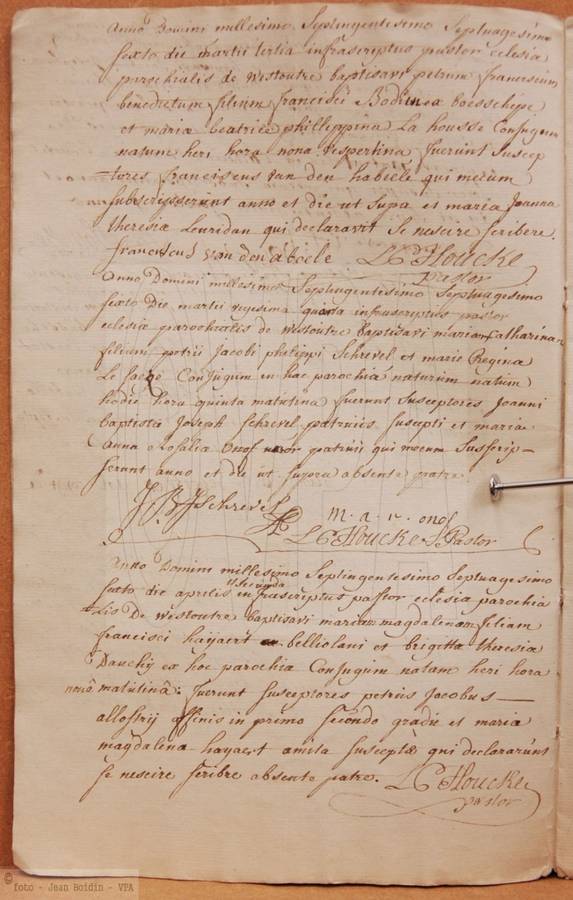 Anno Domini millesimo Septingentesimo Septuagesimo
sexto die martii tertia infrascriptus pastor eclesia
parochialis de Westoutre baptisavi petrum franciscum
benedictum filium francisci Bodin ex boesschepe
et maria beatrice philleppina La housse Conjugum
natum heri hora nona vespertina fuerunt suscep
tores franciscus van den habeele qui mecum
subscripserunt anno et die ut supa et maria Joanna
theresia Leuridan qui declaravit se nescire scribere.
franciscus van den abeele L C Houcke
pastor
Anno Domini millesimo Septingentesimo Septuagesimo
sexto Die martii vigesima quarta infrascriptus pastor
eclesia parochialis de westoutre baptisavi mariam Catharinam
filium petrii Jacobi philippi Schrevel et marie Regina
Le Conjugum in hac parochia naturum natum
hodie hora quinta matutina fuerunt susceptores Joanni
baptista Joseph Schrevel patruus suscepti et maria
anna Rosalia onof uxor patruii qui mecum Suscrip-
serunt anno et die ut supora absente patre.
J B J Schrevel m. a. r. onof
L C Houcke Pastor
Anno Domini millesimo Septingentesimo Septuagesimo
secunda
sexto die aprilis infrascriptus pastor eclesia parochia
lis De westoutre baptisavi mariam magdalenam filiam
francisci hayaert ex belliolani et brigitta theresia
Dauchij ex hoc parochia Conjugum natam heri hora
matutinâ: fuerunt susceptores petrus Jacobus —
allostrij affinis in primo secondo gradu et maria
magdalena hayaert amita suscepta qui declararunt
se nescire scribre absente patre. L C Houcke
pastor
© foto - Jean Boidin - VPA